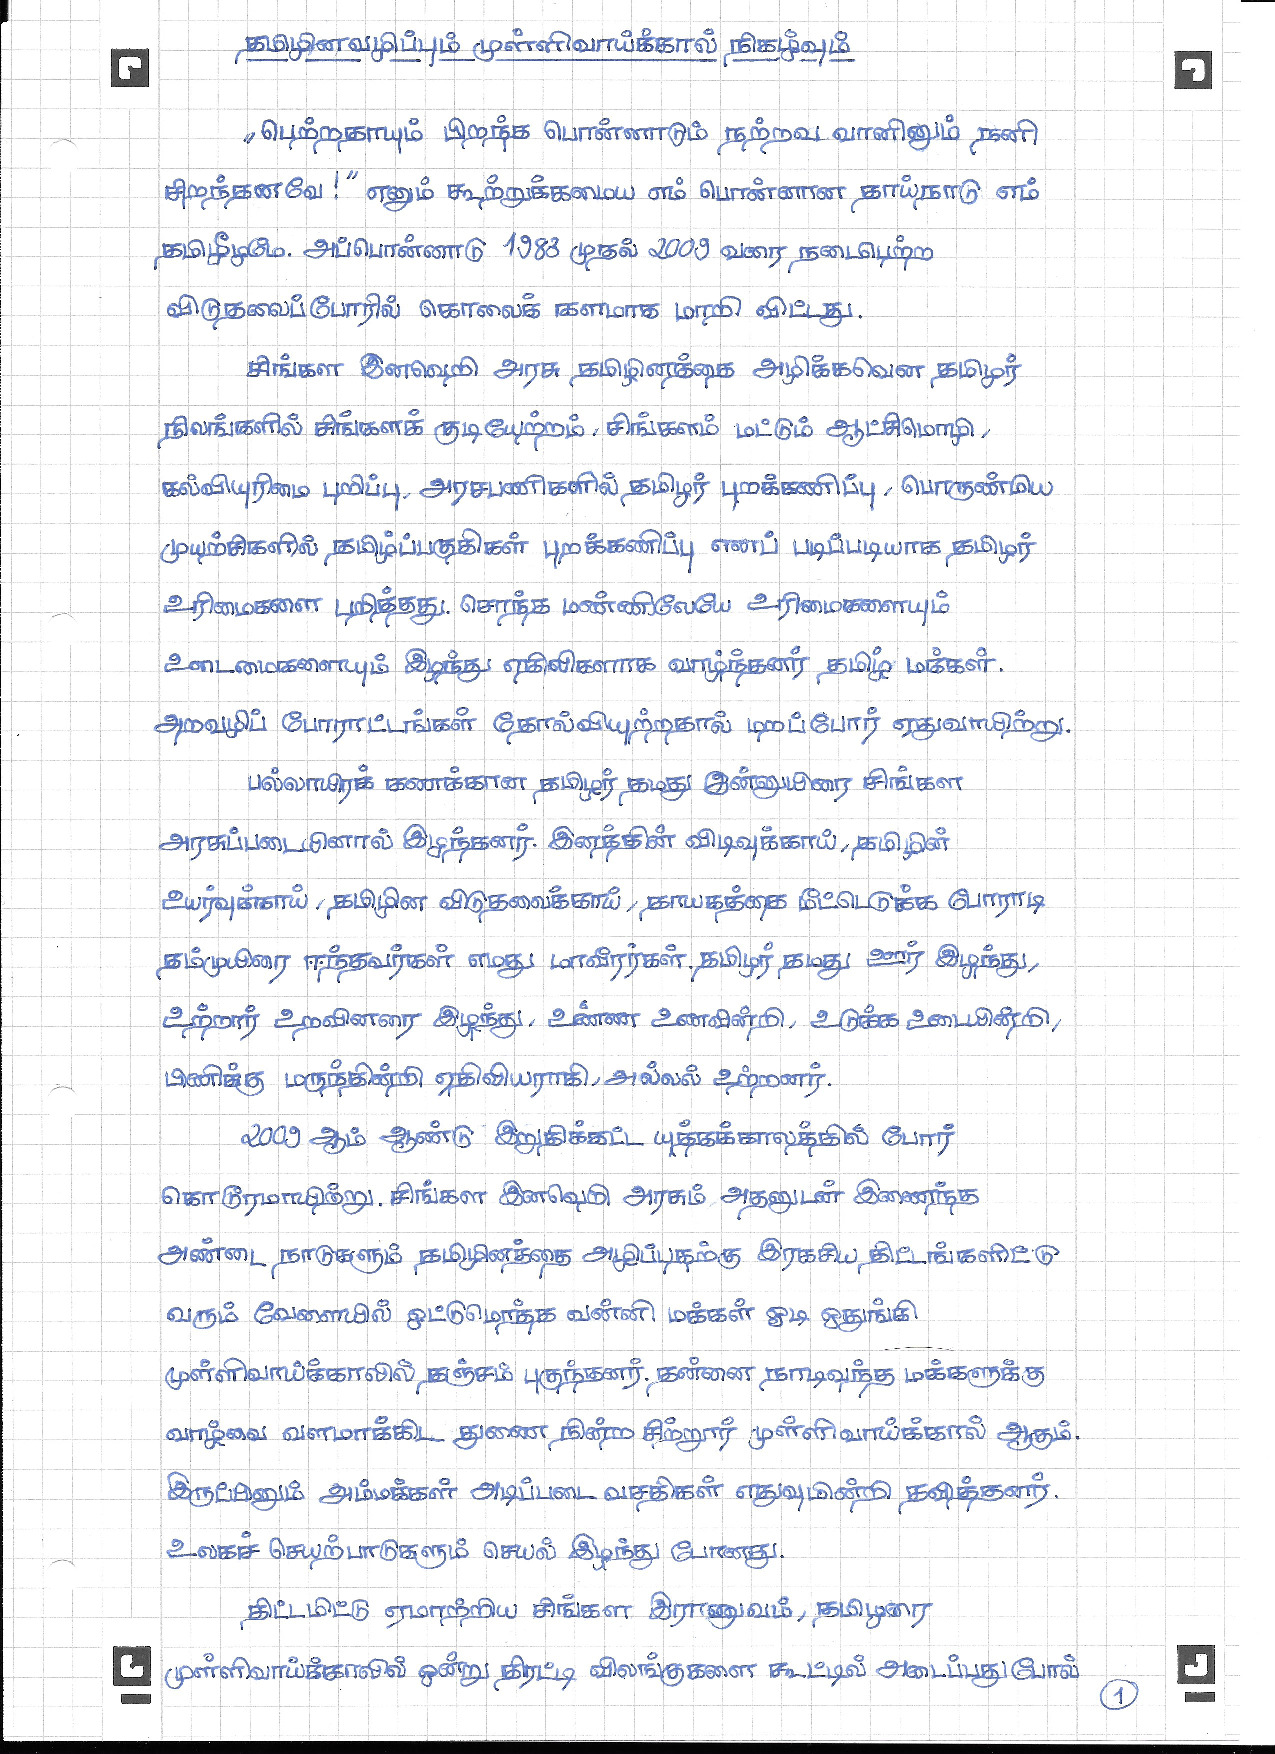 தமிழினவழிப்பும் முள்ளிவாய்க்கால் நிகழ்வும்
"பெற்றதாயும் பிறந்த பொன்னாடும் நற்றவ வானினும் நனி
சிறந்தனவே!" எனும் கூற்றுக்கமைய எம் பொன்னான தாய்நாடு எம்
தமிழீழமே. அப்பொன்னாடு 1983 முதல் 2009 வரை நடைபெற்ற
விடுதலைப்போரில் கொலைக் களமாக மாறி விட்டது.
சிங்கள இனவெறி அரசு தமிழினத்தை அழிக்கவென தமிழர்
நிலங்களில் சிங்களக் குடியேற்றம், சிங்களம் மட்டும் ஆட்சிமொழி,
கல்வியுரிமை பறிப்பு, அரசபணிகளில் தமிழர் புறக்கணிப்பு, பொருண்மிய
முயற்சிகளில் தமிழ்ப்பகுதிகள் புறக்கணிப்பு எனப் படிப்படியாக தமிழர்
உரிமைகளை பறித்தது. சொந்த மண்ணிலேயே உரிமைகளையும்
உடைமைகளையும் இழந்து ஏதிலிகளாக வாழ்ந்தனர் தமிழ் மக்கள்.
அறவழிப் போராட்டங்கள் தோல்வியுற்றதால் மறப்போர் ஏதுவாயிற்று.
பல்லாயிரக் கணக்கான தமிழர் தமது இன்னுயிரை சிங்கள
அரசுப்படையினால் இழந்தனர். இனத்தின் விடிவுக்காய், தமிழின்
உயர்வுக்காய், தமிழின விடுதலைக்காய், தாயகத்தை மீட்டெடுக்க போராடி
தம்முயிரை ஈந்தவர்கள் எமது மாவீரர்கள். தமிழர் தமது ஊர் இழந்து,
உற்றார் உறவினரை இழந்து, உண்ண உணவின்றி, உடுக்க உடையின்றி,
பிணிக்கு மருந்தின்றி ஏதிலியராகி, அல்லல் உற்றனர்.
2009 ஆம் ஆண்டு இறுதிக்கட்ட யுத்தக்காலத்தில் போர்
கொடூரமாயிற்று. சிங்கள இனவெறி அரசும் அதனுடன் இணைந்த
அண்டை நாடுகளும் தமிழினத்தை அழிப்பதற்கு இரகசிய திட்டங்களிட்டு
வரும் வேளையில் ஒட்டுமொத்த வன்னி மக்கள் ஓடி ஒதுங்கி
முள்ளிவாய்க்காலில் தஞ்சம் புகுந்தனர். தன்னை நாடிவந்த மக்களுக்கு
வாழ்வை வளமாக்கிட துணை நின்ற சிற்றூர் முள்ளிவாய்க்கால் ஆகும்.
இருப்பினும் அம்மக்கள் அடிப்படை வசதிகள் எதுவுமின்றி தவித்தனர்.
உலகச் செயற்பாடுகளும் செயல் இழந்து போனது.
திட்டமிட்டு ஏமாற்றிய சிங்கள இராணுவம், தமிழரை
முள்ளிவாய்க்காலில் ஒன்று திரட்டி விலங்குகளை கூட்டில் அடைப்பதுபோல்
1